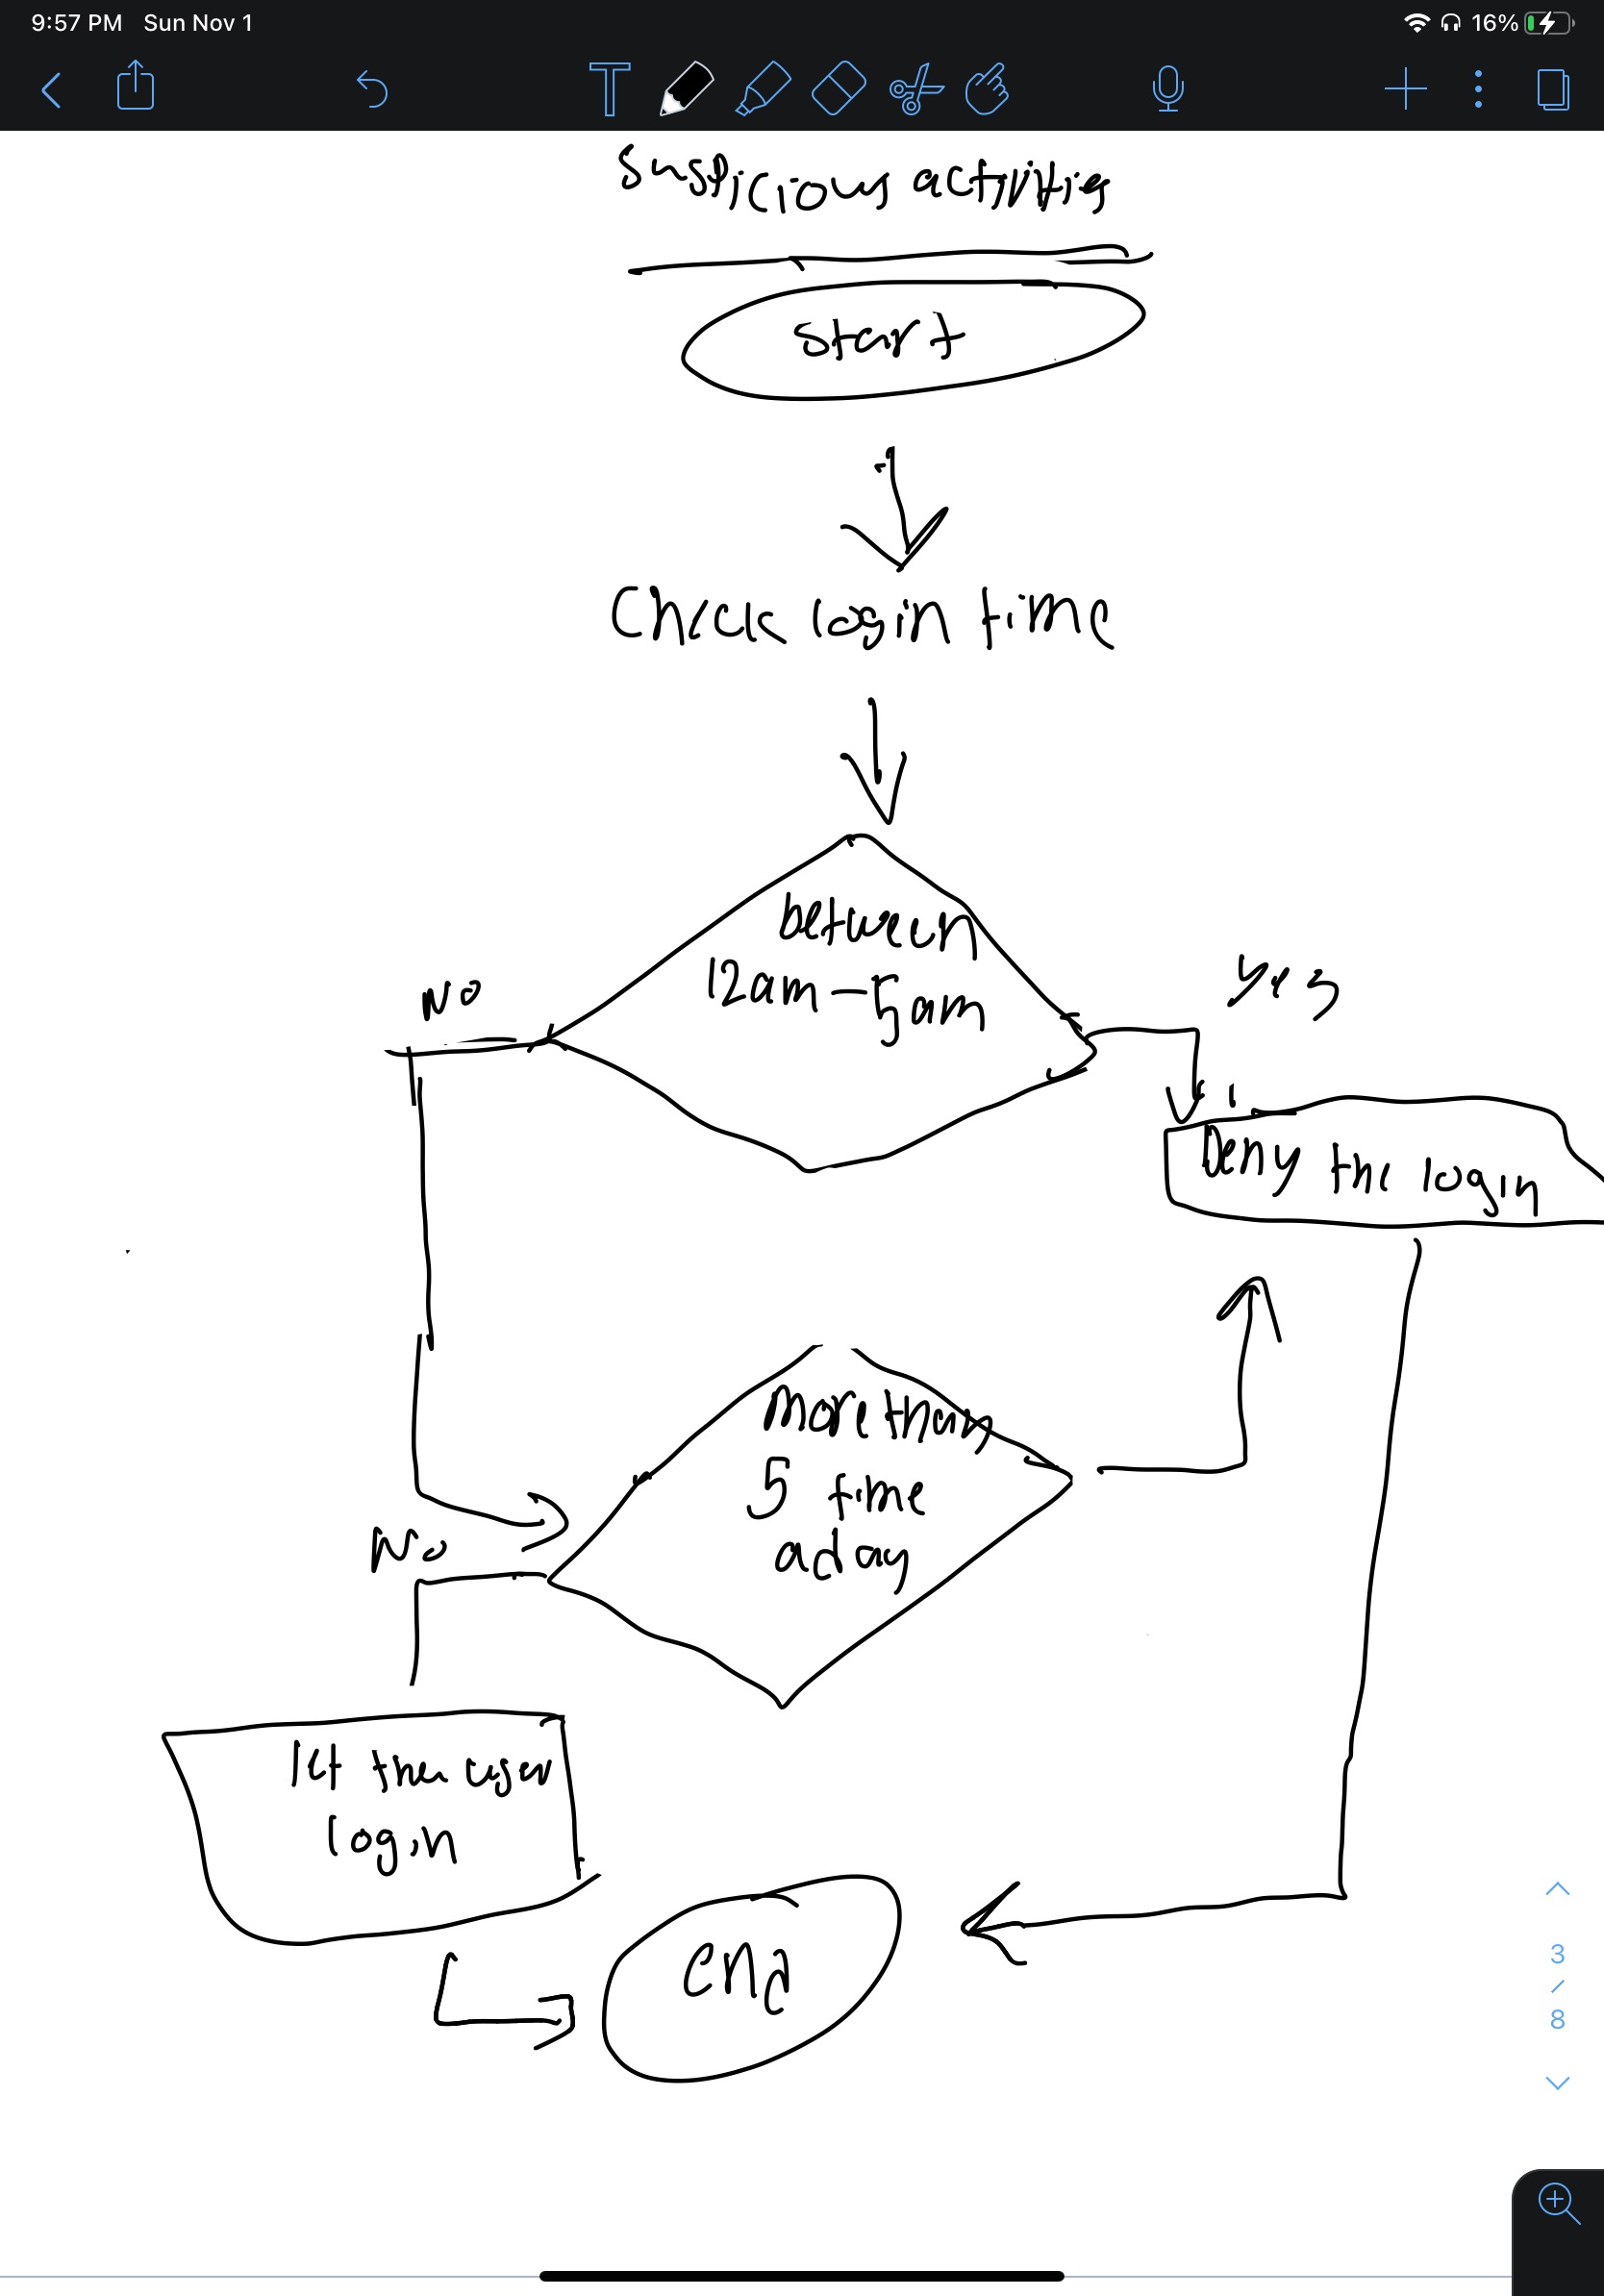 9:57 PM Sun Nov 1
16%
T
Suspicious activities
start
Check login time
between
12am-5am
No
yes
Deny the login
More than
5 time
a day
No
let the user
login
end
3
/
8